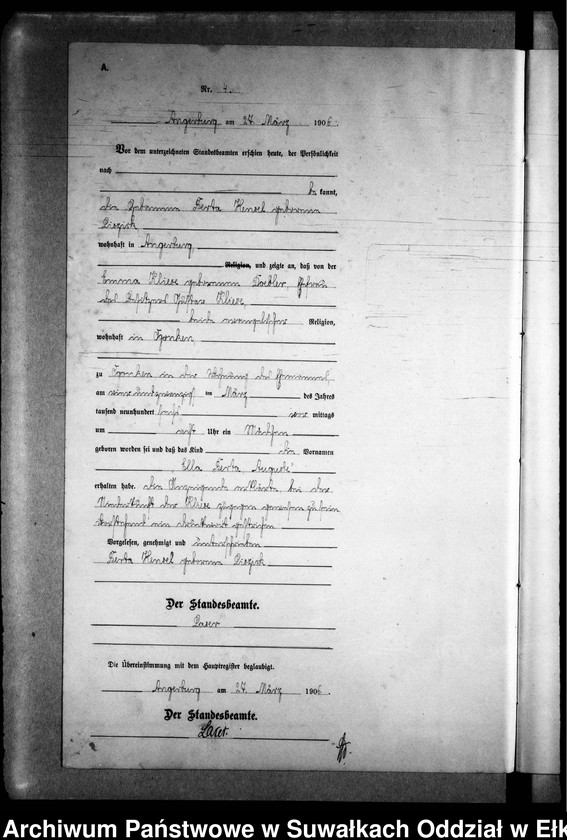 A.
Nr. 4.
Angerburg am 27. März 1906.
Vor dem unterzeichneten Standesbeamten erschien heute, der Persönlichkeit
nach
be kannt,
die Hebamme Berta Hensel geborene
wohnhaft in Angerburg
Religion, und zeigte an, daß von der
Emma Kliewe geborenen Ehefrau
des Besitzers Gustav Kliewe,
beide evangelischer Religion,
wohnhaft in
zu in der Wohnung des Ehemannes,
am einundzwanzigsten März des Jahres
tausend neunhundert sechs vor mittags
um Uhr ein Mädchen
geboren worden sei und daß das Kind die Vornamen
Ella Berta Auguste
erhalten habe. Die Anzeigende erklärte, bei der
Niederkunft der Kliewe zugegen gewesen zu sein.
Vorstehend ein Druckwort gestrichen.
Vorgelesen, genehmigt und unterschrieben
Berta Hensel geborene
Der Standesbeamte.
Die Übereinstimmung mit dem Hauptregister beglaubigt.
Angerburg am 27. März 1906.
Der Standesbeamte.
Archiwum Państwowe w Suwałkach Oddział w Ełk